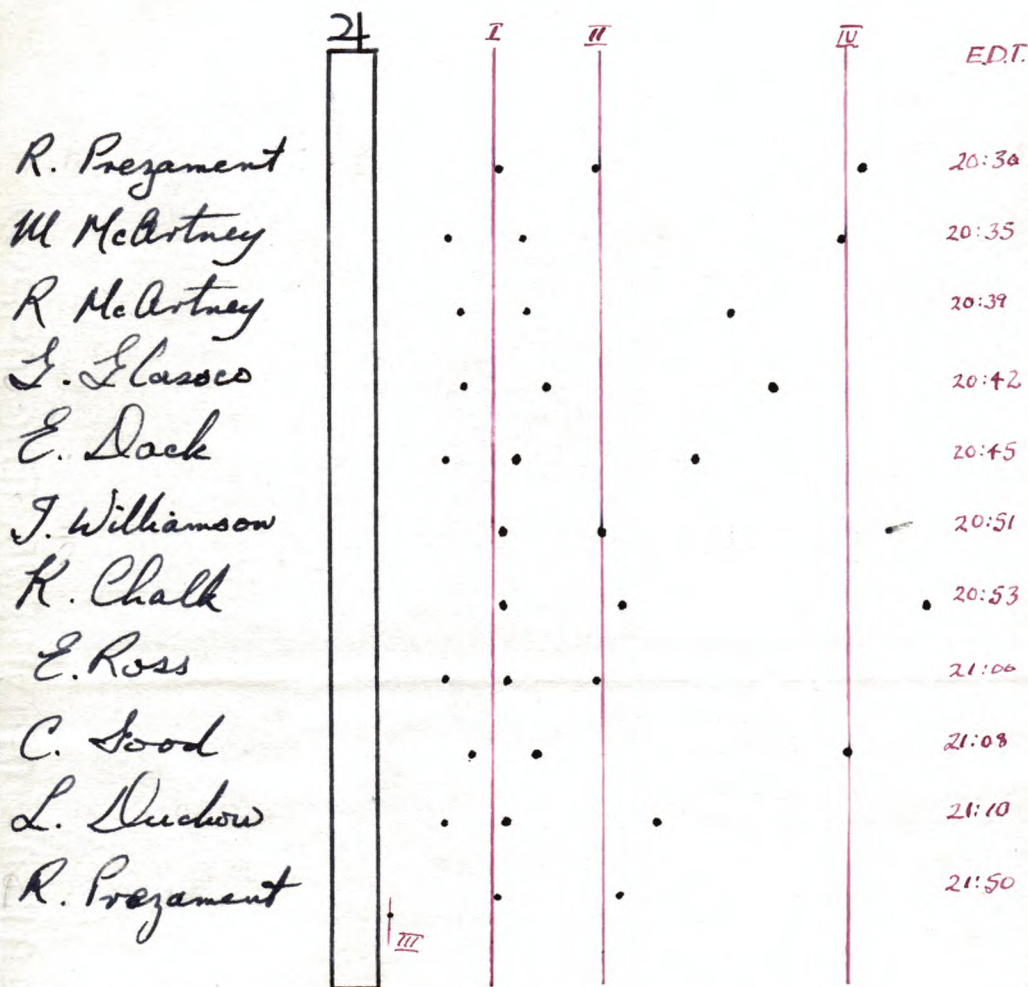 ♃ I II IV E.D.T.
R. Prezament 20:30
M McCartney 20:35
R McCartney 20:39
20:42
E. Dack 20:45
Williamson 20:51
K. Chalk 20:53
E. Ross 21:06
C. Good 21:08
L. Duchow 21:10
R. Prezament 21:50
III